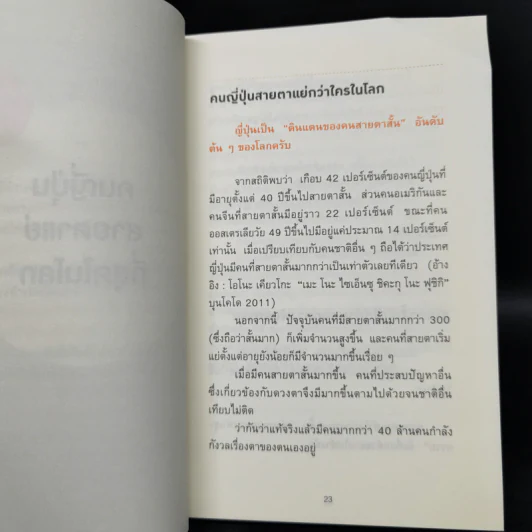 คนญี่ปุ่นสายตาแย่กว่าใครในโลก
ญี่ปุ่นเป็น "ดินแดนของคนสายตาสั้น" อันดับ
ต้น ๆ ของโลกครับ
จากสถิติพบว่า เกือบ 42 เปอร์เซ็นต์ของคนญี่ปุ่นที่
มีอายุตั้งแต่ 40 ปีขึ้นไปสายตาสั้น ส่วนคนอเมริกันและ
คนจีนที่สายตาสั้นมีอยู่ราว 22 เปอร์เซ็นต์ ขณะที่คน
ออสเตรเลียวัย 49 ปีขึ้นไปมีอยู่แค่ประมาณ 14 เปอร์เซ็นต์
เท่านั้น เมื่อเปรียบเทียบกับคนชาติอื่น ๆ ถือได้ว่าประเทศ
ญี่ปุ่นมีคนที่สายตาสั้นมากกว่าเป็นเท่าตัวเลยทีเดียว (อ้าง
อิง : โอโนะ เคียวโกะ "เมะ โนะ ไซเอ็นซุ ชิคะกุ โนะ ฟุชิกิ"
บุนโคโด 2011)
นอกจากนี้ ปัจจุบันคนที่มีสายตาสั้นมากกว่า 300
(ซึ่งถือว่าสั้นมาก) ก็เพิ่มจำนวนสูงขึ้น และคนที่สายตาเริ่ม
แย่ตั้งแต่อายุยังน้อยก็มีจำนวนมากขึ้นเรื่อย ๆ
เมื่อมีคนสายตาสั้นมากขึ้น คนที่ประสบปัญหาอื่น
ซึ่งเกี่ยวข้องกับดวงตาจึงมีมากขึ้นตามไปด้วยจนชาติอื่น
เทียบไม่ติด
ว่ากันว่าแท้จริงแล้วมีคนมากกว่า 40 ล้านคนกำลัง
กังวลเรื่องตาของตนเองอยู่
23